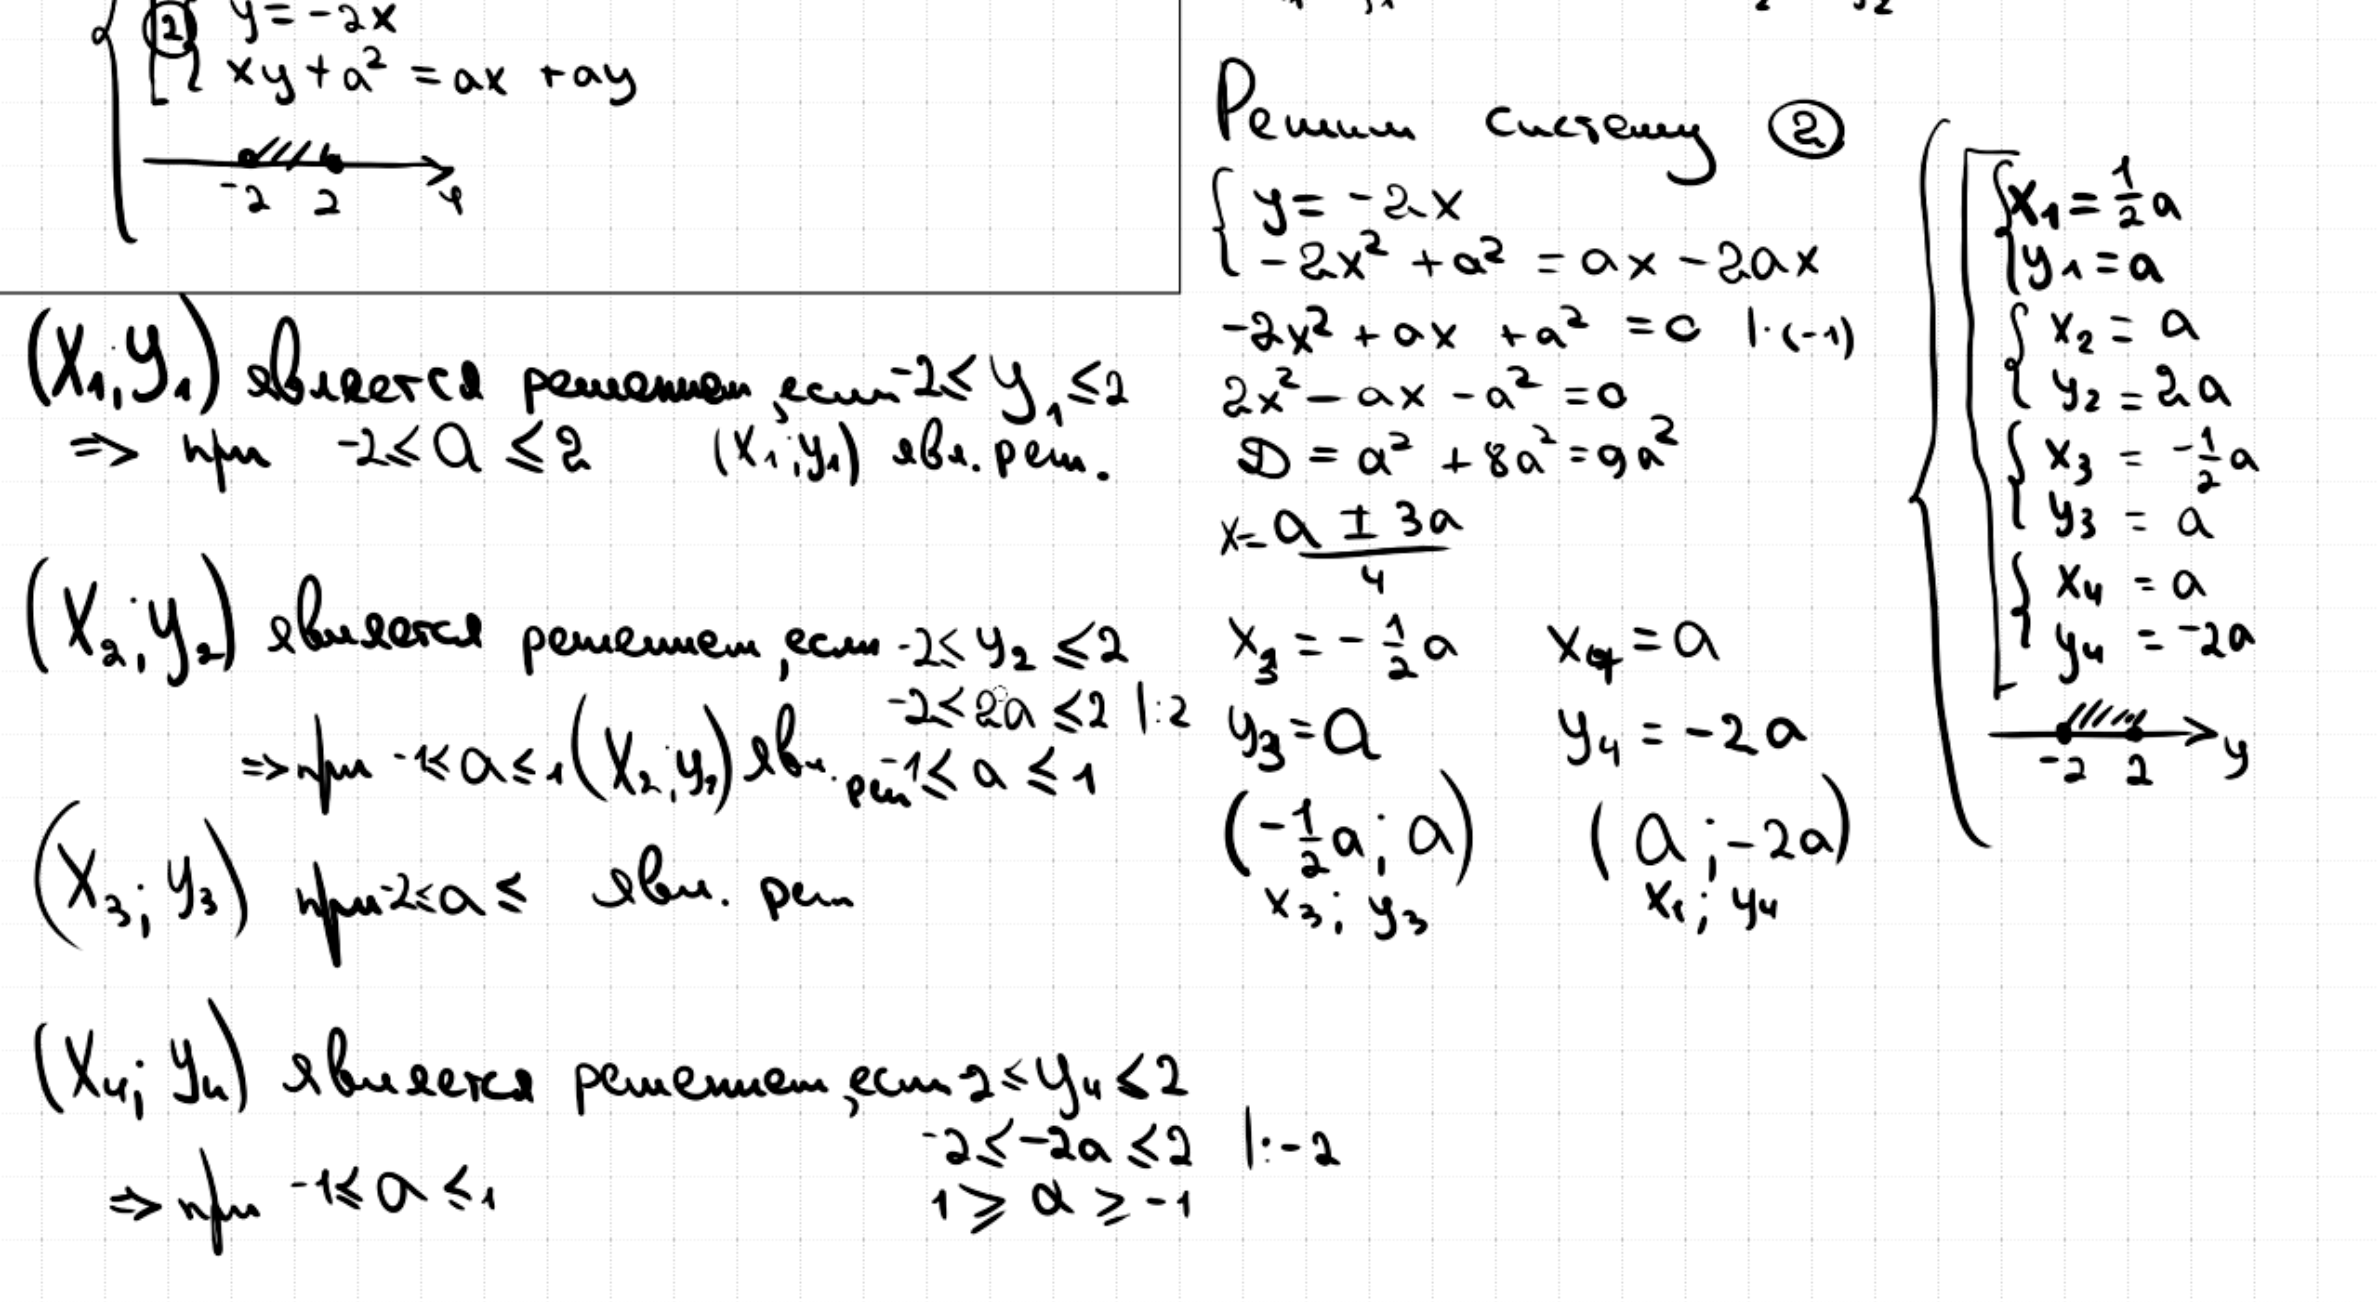 ② y = -2x
xy + a² = ax + ay
-2 2 y
(x₁; y₁) является решением, если -2 ≤ y₁ ≤ 2
=> при -2 ≤ a ≤ 2 (x₁; y₁) явл. реш.
(x₂; y₂) является решением, если -2 ≤ y₂ ≤ 2
-2 ≤ 2a ≤ 2 |:2
-1 ≤ a ≤ 1
=> при -1 ≤ a ≤ 1 (x₂; y₂) явл. реш
(x₃; y₃) при -2 ≤ a ≤ явл. реш
(x₄; y₄) является решением, если -2 ≤ y₄ ≤ 2
-2 ≤ -2a ≤ 2 |:-2
=> при -1 ≤ a ≤ 1
1 ≥ a ≥ -1
Решим систему ②
y = -2x
-2x² + a² = ax - 2ax
-2x² + ax + a² = 0 |·(-1)
2x² - ax - a² = 0
D = a² + 8a² = 9a²
x = (a ± 3a)/4
x₃ = -1/2 a x₄ = a
y₃ = a y₄ = -2a
(-1/2 a; a) (a; -2a)
x₃; y₃ x₄; y₄
x₁ = 1/2 a
y₁ = a
x₂ = a
y₂ = 2a
x₃ = -1/2 a
y₃ = a
x₄ = a
y₄ = -2a
-2 2 y